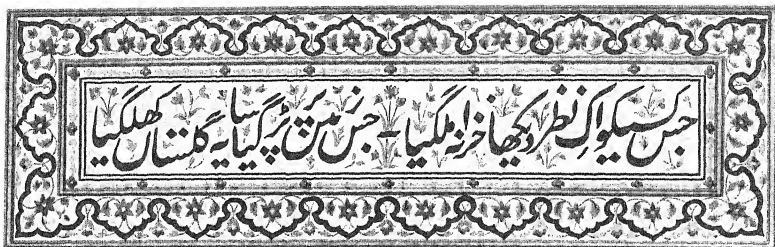 جس کسیکو اک نظر دیکھا خزانہ ملگیا - جس زمیں پر پڑ گیا سایہ گلستاں کھلگیا